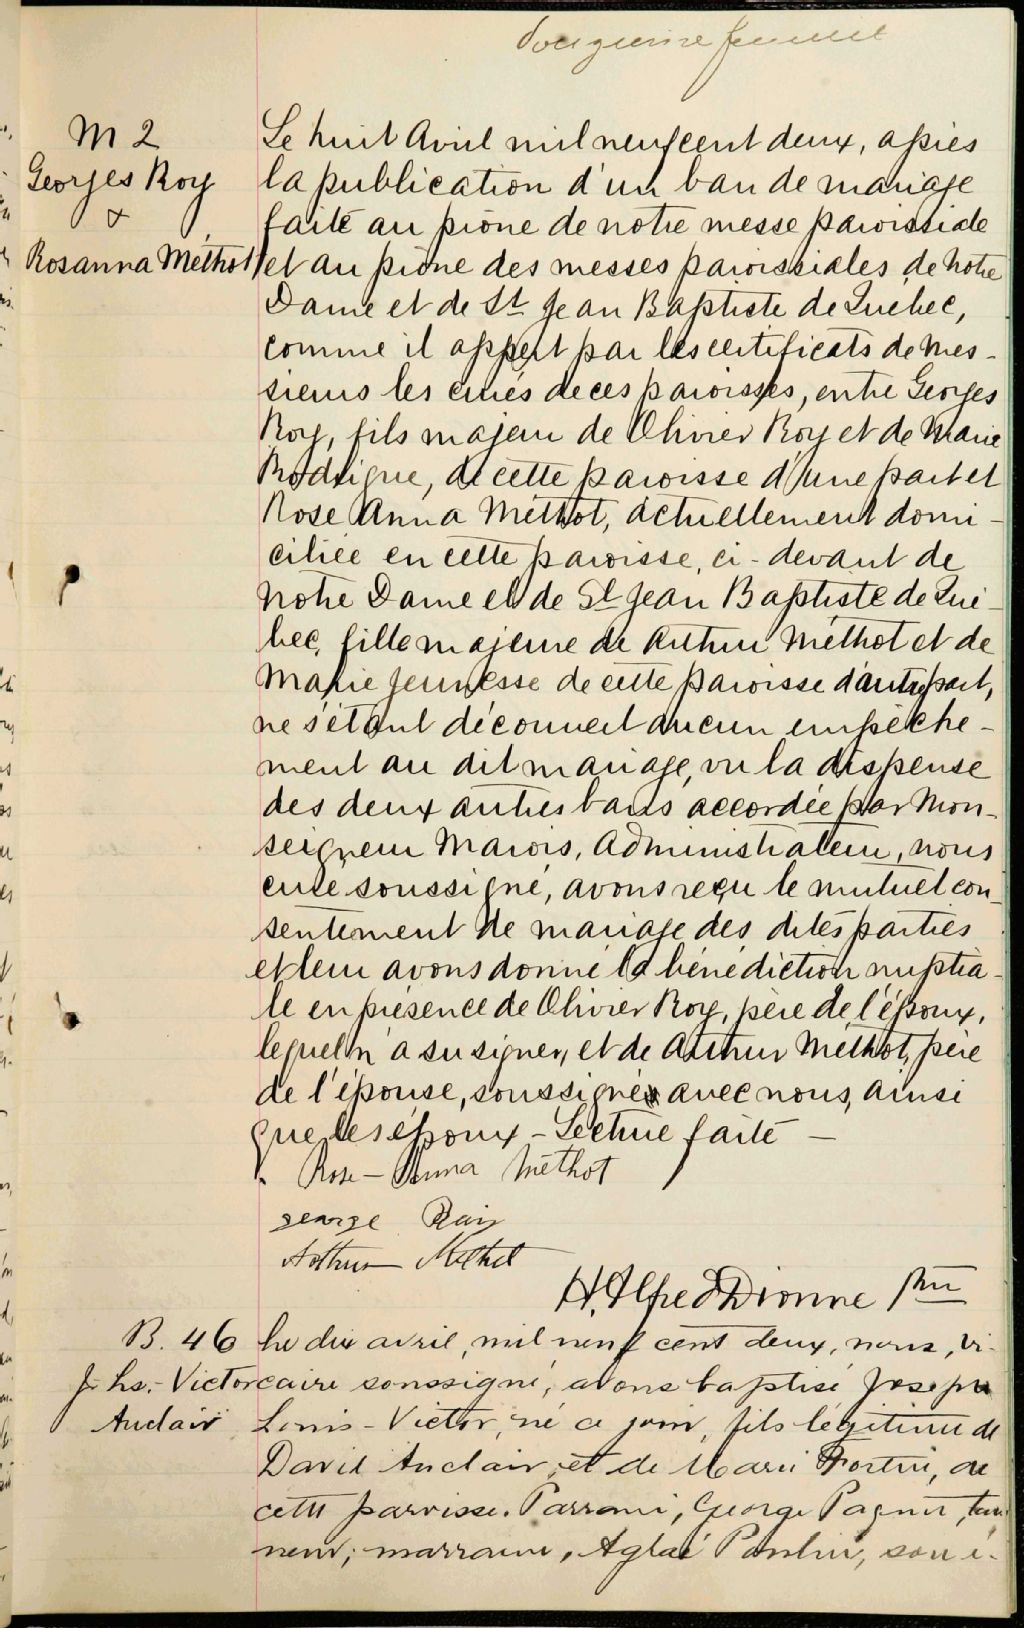 feuillet
M 2
Georges Roy
&
Rosanna Méthot
Le huit Avril mil neuf cent deux, après
la publication d'un ban de mariage
faite au prône de notre messe paroissiale
et au prône des messes paroissiales de Notre
Dame et de St Jean Baptiste de Québec,
comme il appert par les certificats de Mes-
sieurs les curés de ces paroisses, entre Georges
Roy, fils majeur de Olivier Roy et de Marie
Rodrigue, de cette paroisse d'une part et
Rose Anna Méthot, actuellement domi-
ciliée en cette paroisse, ci-devant de
Notre Dame et de St Jean Baptiste de Qué-
bec, fille majeure de Arthur Méthot et de
Marie Jeunesse de cette paroisse d'autre part,
ne s'étant découvert aucun empêche-
ment au dit mariage, vu la dispense
des deux autres bans accordée par Mon-
seigneur Marois, Administrateur, nous
curé soussigné, avons reçu le mutuel con-
sentement de mariage des dites parties
et leur avons donné la bénédiction nuptia-
le en présence de Olivier Roy, père de l'époux,
lequel n'a su signer, et de Arthur Méthot, père
de l'épouse, soussigné avec nous, ainsi
que les époux - Lecture faite -
Rose-Anna Méthot
george Roy
Arthur Méthot
H. Alfred Dionne Ptre
B. 46
Jhs.-Victor
Auclair
Le dix avril, mil neuf cent deux, nous, vi-
caire soussigné, avons baptisé Joseph
Louis-Victor, né ce jour, fils légitime de
David Auclair, et de Marie Fortin, de
cette paroisse. Parrain, George Paquet, tan-
neur; marraine, Aglaé Poulin, son é-